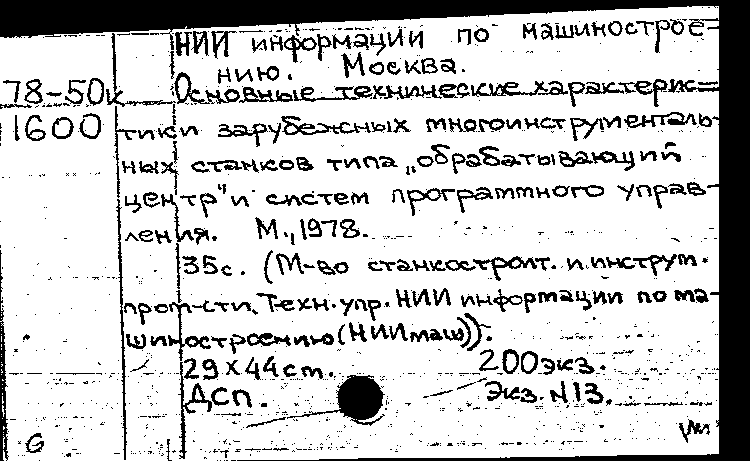 НИИ информации по машинострое-
нию. Москва.
78-50к Основные технические характерис-
1600 тики зарубежных многоинструменталь-
ных станков типа „обрабатывающий
центр" и систем программного управ-
ления. М., 1978.
35с. (М-во станкостроит. и инструм.
пром-сти. Техн. упр. НИИ информации по ма-
шиностроению (НИИмаш)).
29×44cm. 200экз.
ДСП. Экз. N13.